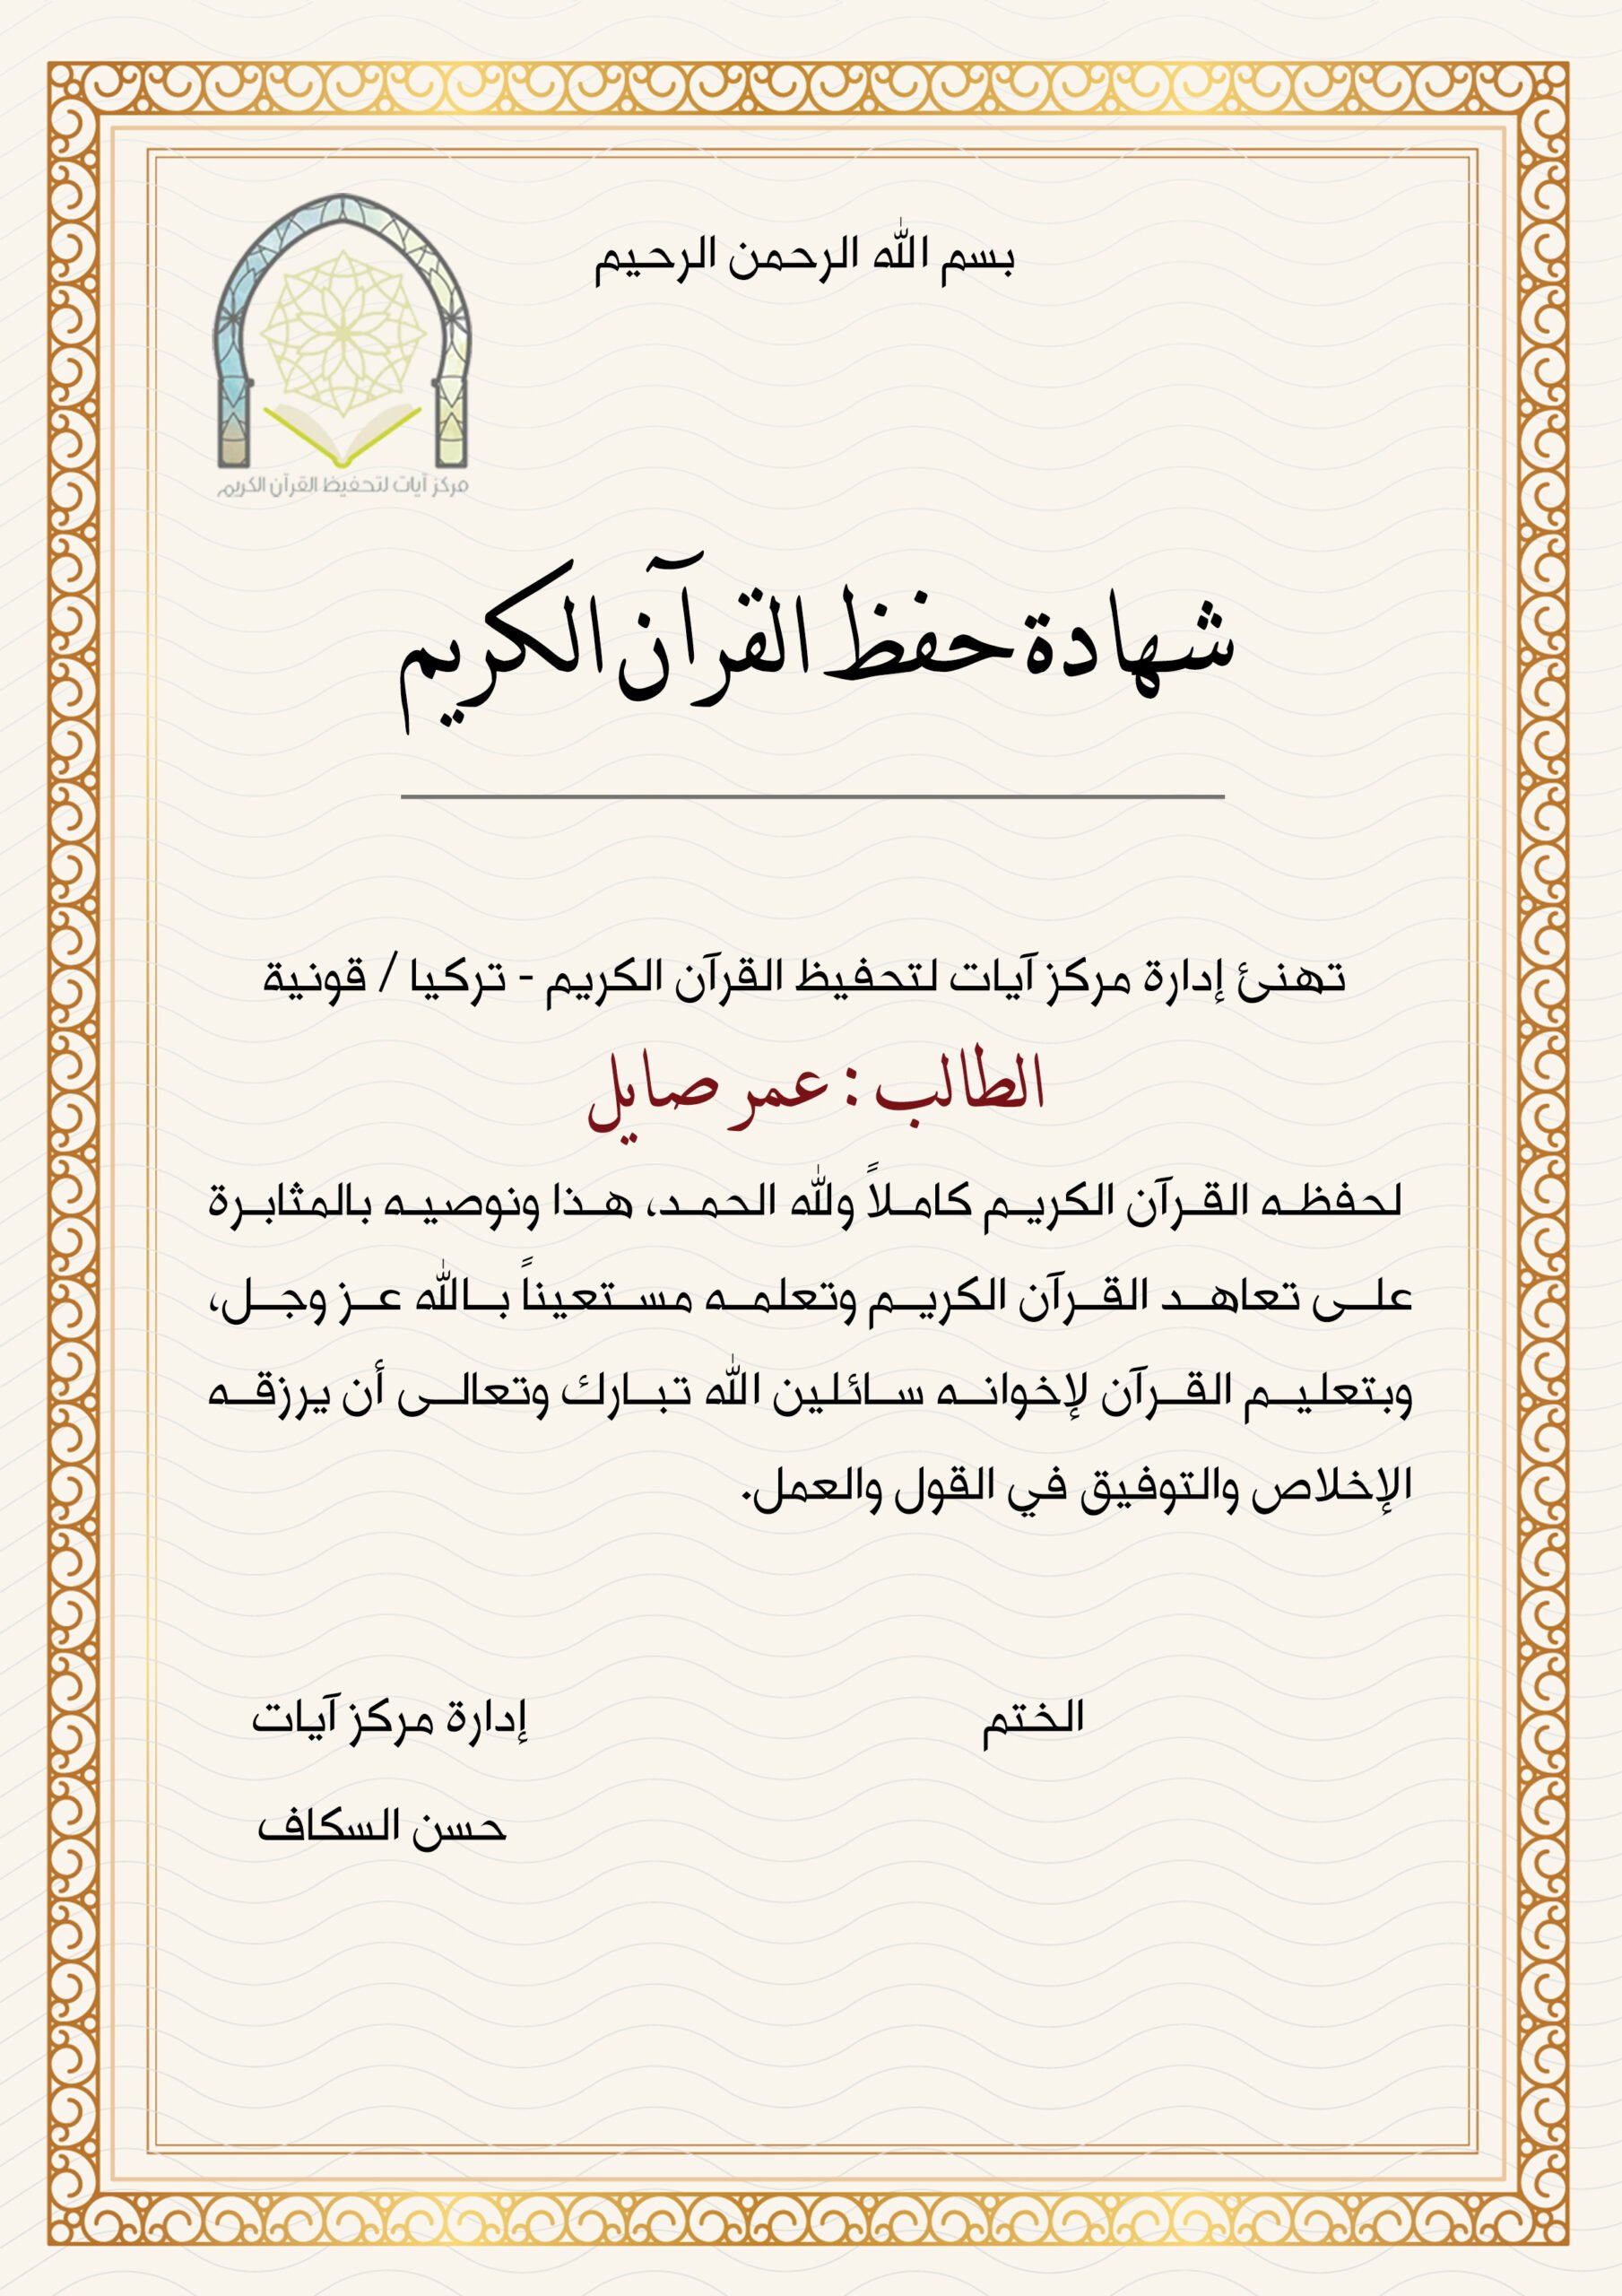 بسم الله الرحمن الرحيم
مركز آيات لتحفيظ القرآن الكريم
شهادة حفظ القرآن الكريم
تهنئ إدارة مركز آيات لتحفيظ القرآن الكريم - تركيا / قونية
الطالب : عمر صايل
لحفظه القرآن الكريم كاملاً ولله الحمد، هذا ونوصيه بالمثابرة
على تعاهد القرآن الكريم وتعلمه مستعيناً بالله عز وجل،
وبتعليم القرآن لإخوانه سائلين الله تبارك وتعالى أن يرزقه
الإخلاص والتوفيق في القول والعمل.
الختم
إدارة مركز آيات
حسن السكاف